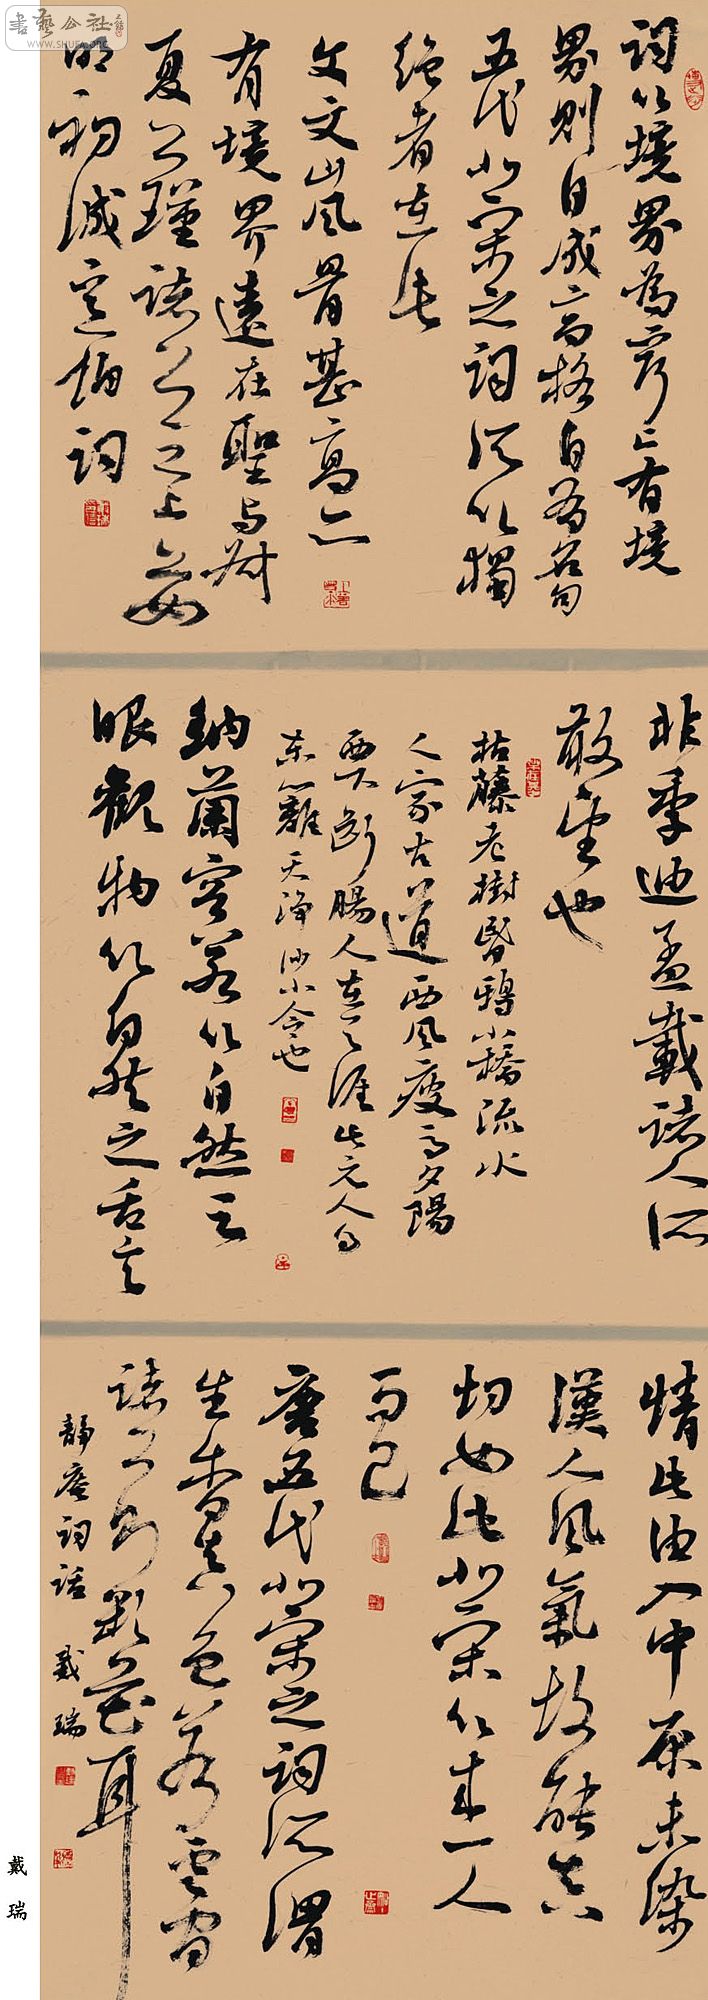 書藝公社
WWW.SHUFA.ORG
詞以境界為最上有境
界則自成高格自有名句
五代北宋之詞所以獨
絕者在此
文文山風骨甚高亦
有境界遠在聖與叔
夏公瑾諸公之上亦如
明初誠意伯詞
非季迪孟載諸人所
敢望也
枯藤老樹昏鴉小橋流水
人家古道西風瘦馬夕陽
西下斷腸人在天涯此元人馬
東籬天淨沙小令也
納蘭容若以自然之
眼觀物以自然之舌言
情此由入中原未染
漢人風氣故能真
切如此北宋以來一人
而已
唐五代北宋之詞所謂
生香真色若雲間
諸公則彩花耳
靜庵詞話 戴瑞
戴瑞